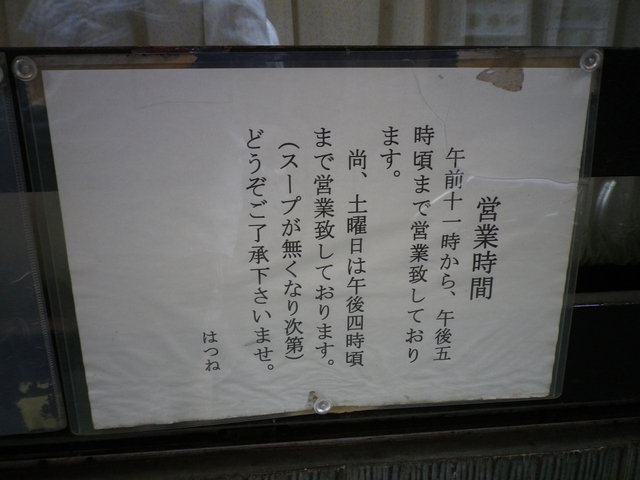 営業時間
午前十一時から、午後五
時頃まで営業致しており
ます。
尚、土曜日は午後四時頃
まで営業致しております。
(スープが無くなり次第)
どうぞご了承下さいませ。
はつね